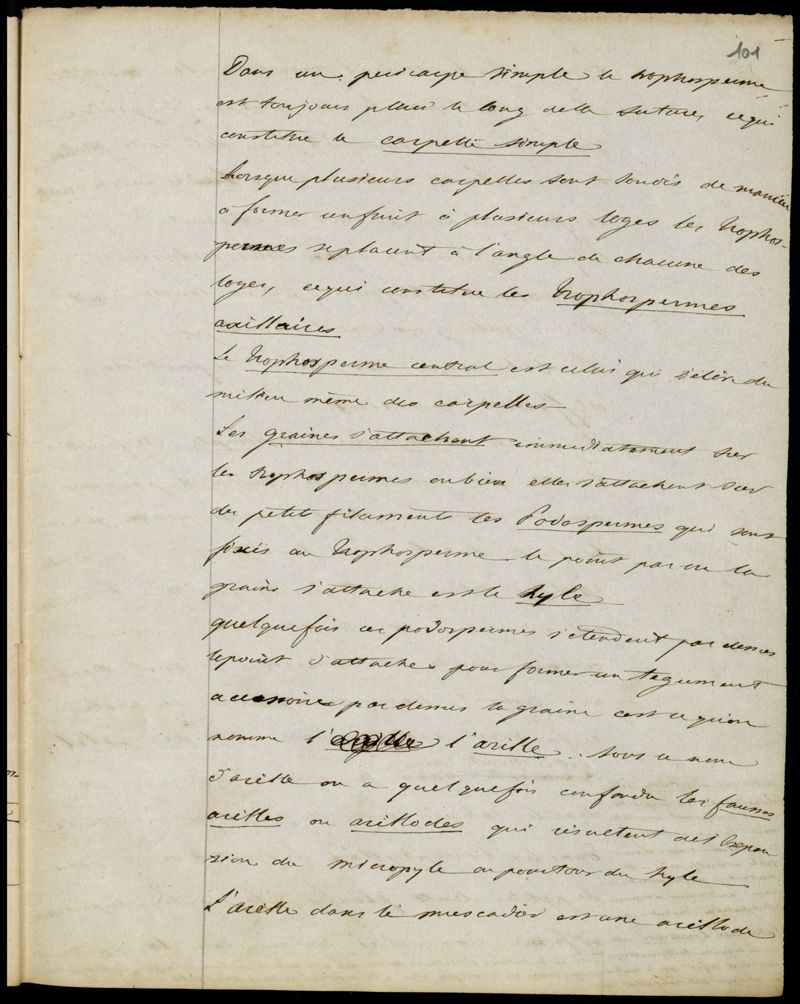 101
Dans un pericarpe simple le trophosperme
est toujours placé le long de la suture, ce qui
constitue le carpelle simple
Lorsque plusieurs carpelles sont soudés de manière
a former un fruit à plusieurs loges les trophos-
permes se placent à l'angle de chacune des
loges, ce qui constitue les trophospermes
axillaires
Le trophosperme central est celui qui s'élève du
milieu même des carpelles
Les graines s'attachent immediatement sur
les trophospermes ou bien elles s'attachent sur
des petits filaments les Podospermes qui sont
fixés au trophosperme le point par ou la
graine s'attache est le hyle
quelquefois ces podospermes s'etendent par dessus
le point d'attache pour former un tegument
accessoire par dessus la graine c'est ce qu'on
nomme l' l'arille. sous ce nom
d'arille on a quelquefois confondu les fausses
arilles ou arillodes qui résultent de l'expan
sion du micropyle au pourtour du hyle
L'arille dans le muscadier est une arillode